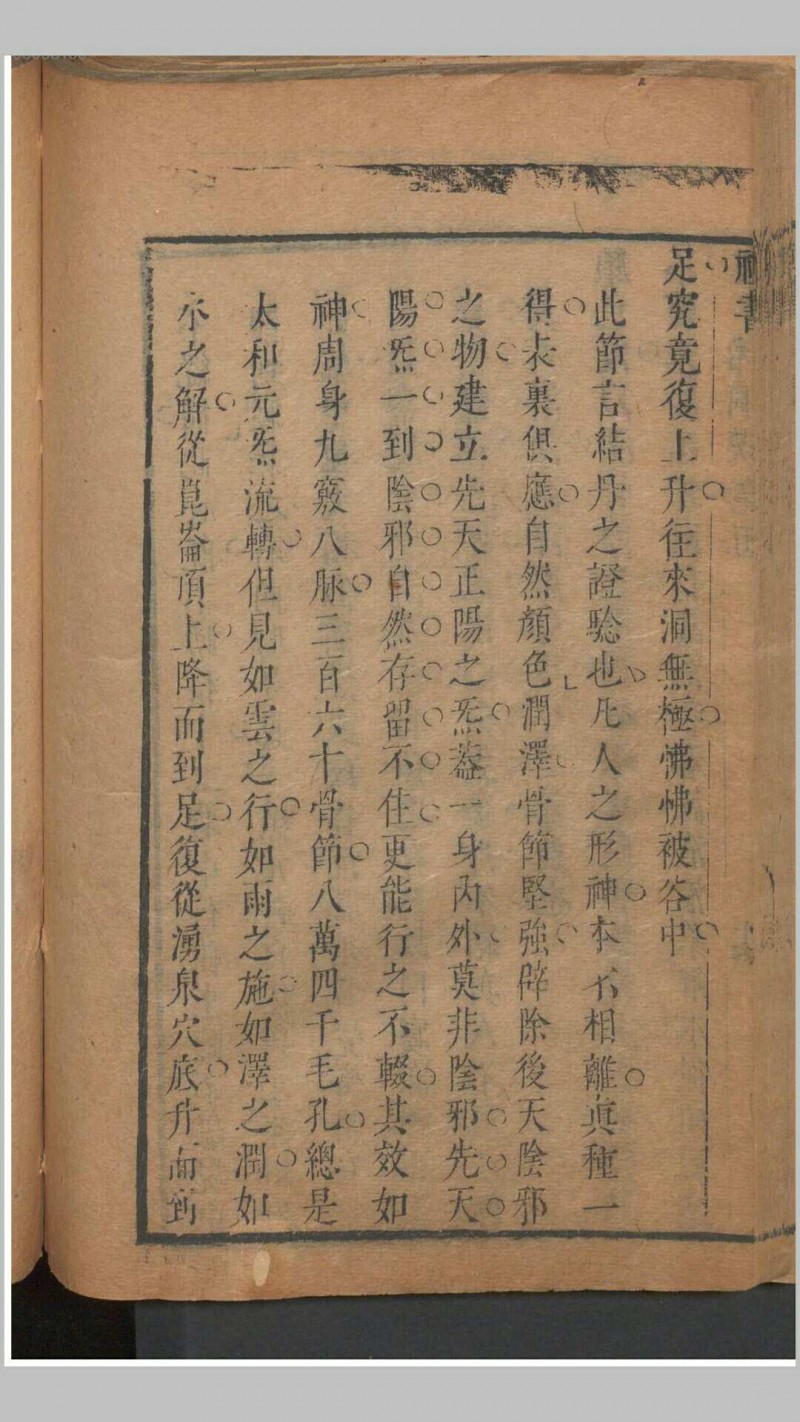 足究竟復上升往來洞無極怫怫被谷中
此節言結丹之證驗也凡人之形神本不相離真種一
得表裏俱應自然顏色潤澤骨節堅強辟除後天陰邪
之物建立先天正陽之炁葢一身內外莫非陰邪先天
陽炁一到陰邪自然存留不住更能行之不輟其效如
神周身九竅八脉三百六十骨節八萬四千毛孔總是
太和元炁流轉但見如雲之行如雨之施如澤之潤如
氷之解從崑崙頂上降而到足復從湧泉穴底升而到